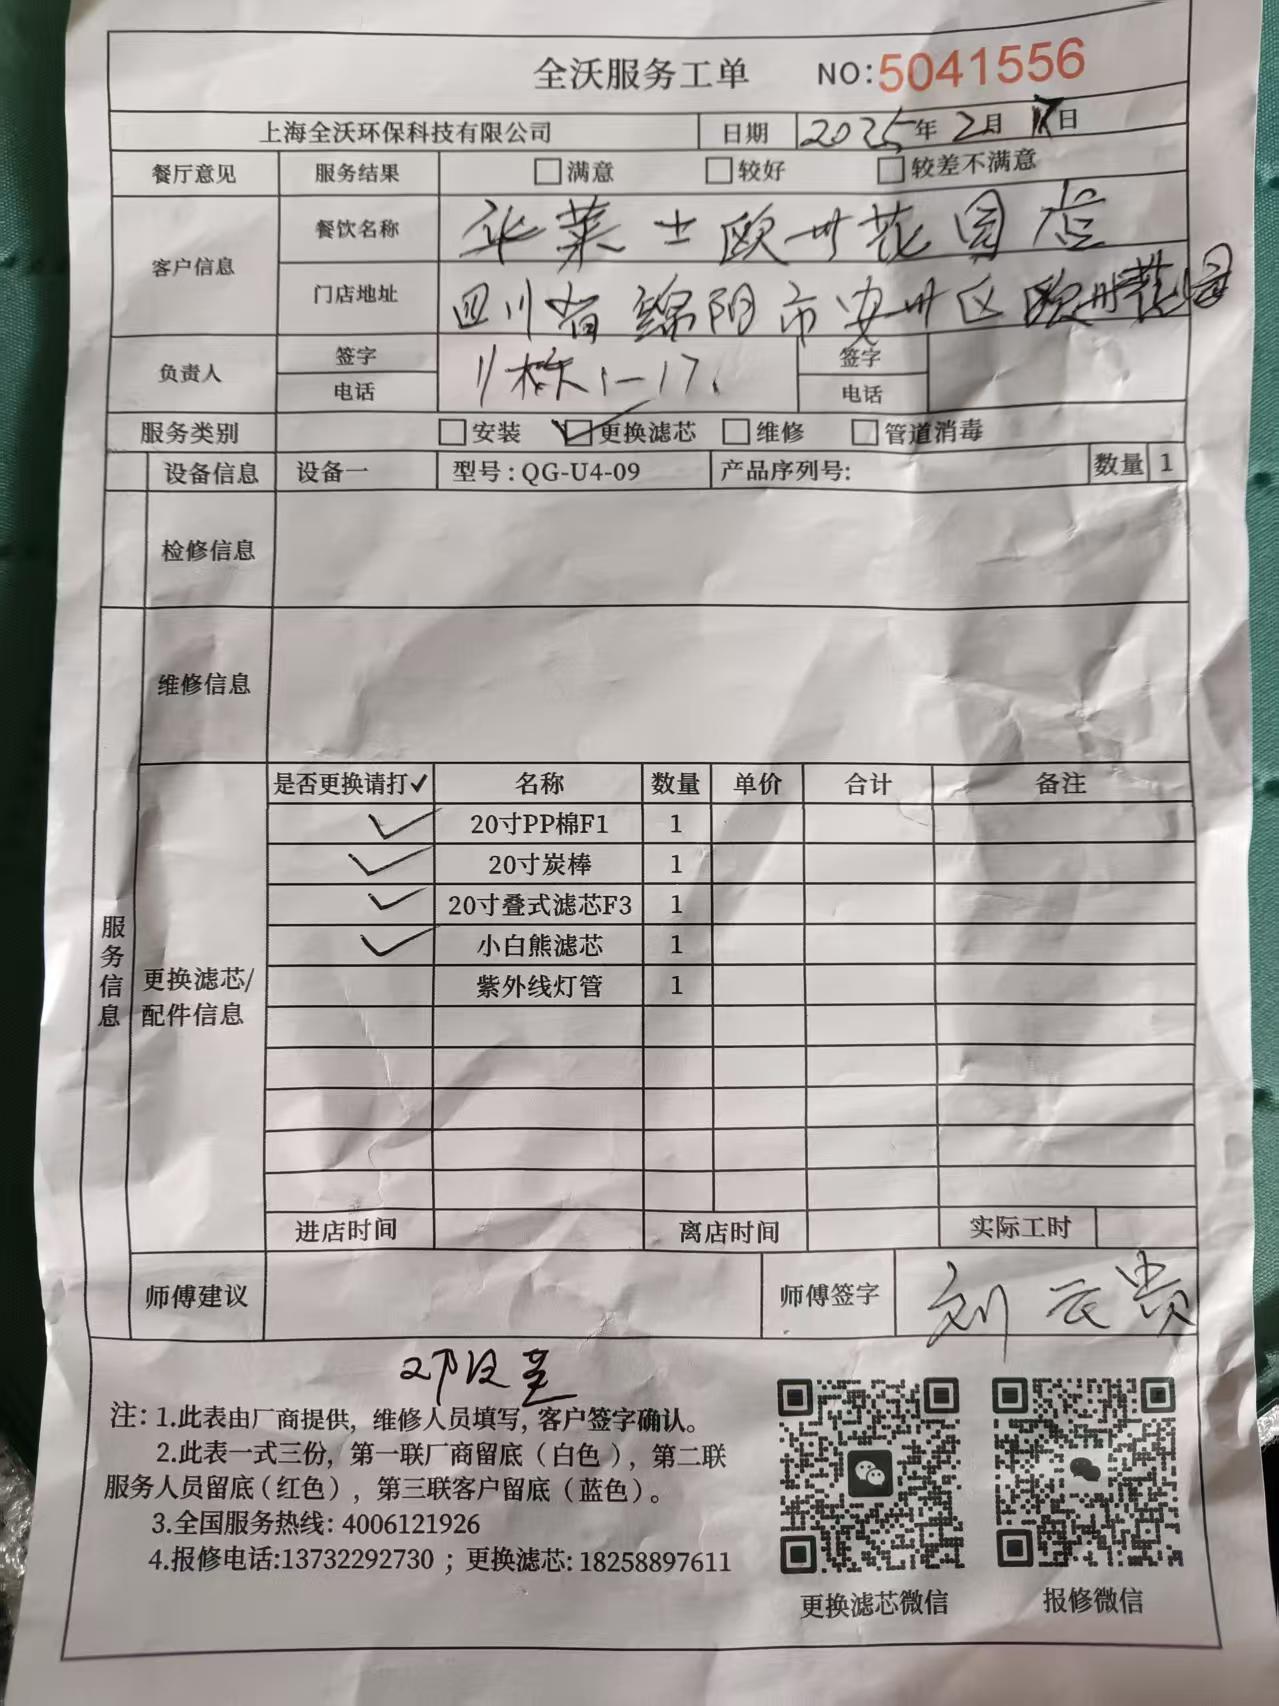 全沃服务工单 NO:5041556
上海全沃环保科技有限公司 日期 2025年2月17日
餐厅意见 服务结果 满意 较好 较差不满意
客户信息 餐饮名称 华莱士欧州花园店
门店地址 四川省绵阳市安州区欧州花园
负责人 签字 11栋1-17. 签字
电话 电话
服务类别 安装 ✓更换滤芯 维修 管道消毒
设备信息 设备一 型号:QG-U4-09 产品序列号: 数量 1
检修信息
维修信息
服务信息
更换滤芯/
配件信息
是否更换请打✓ 名称 数量 单价 合计 备注
✓ 20寸PP棉F1 1
✓ 20寸炭棒 1
✓ 20寸叠式滤芯F3 1
✓ 小白熊滤芯 1
紫外线灯管 1
进店时间 离店时间 实际工时
师傅建议 师傅签字 刘云贵
注:1.此表由厂商提供,维修人员填写,客户签字确认。
2.此表一式三份,第一联厂商留底(白色),第二联
服务人员留底(红色),第三联客户留底(蓝色)。
3.全国服务热线:4006121926
4.报修电话:13732292730;更换滤芯:18258897611
更换滤芯微信 报修微信